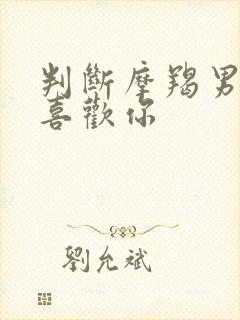 判斷摩羯男
喜歡你
劉允斌